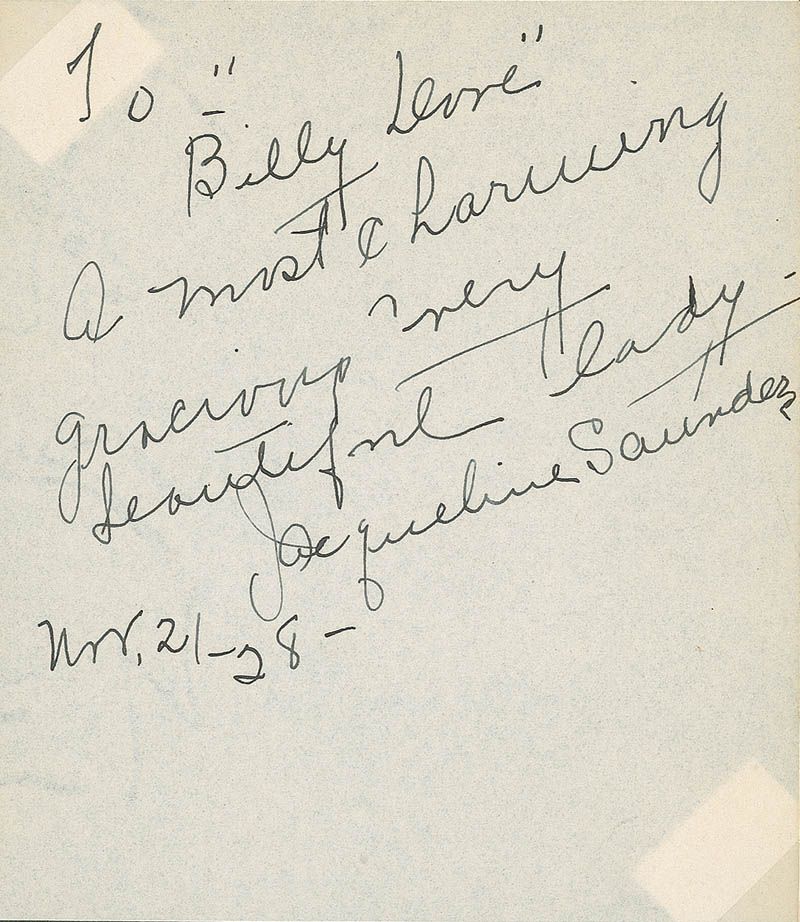 To "Billy Dove"
A most charming
gracious very
beautiful lady.
Jacqueline Saunders
Nov. 21-28-